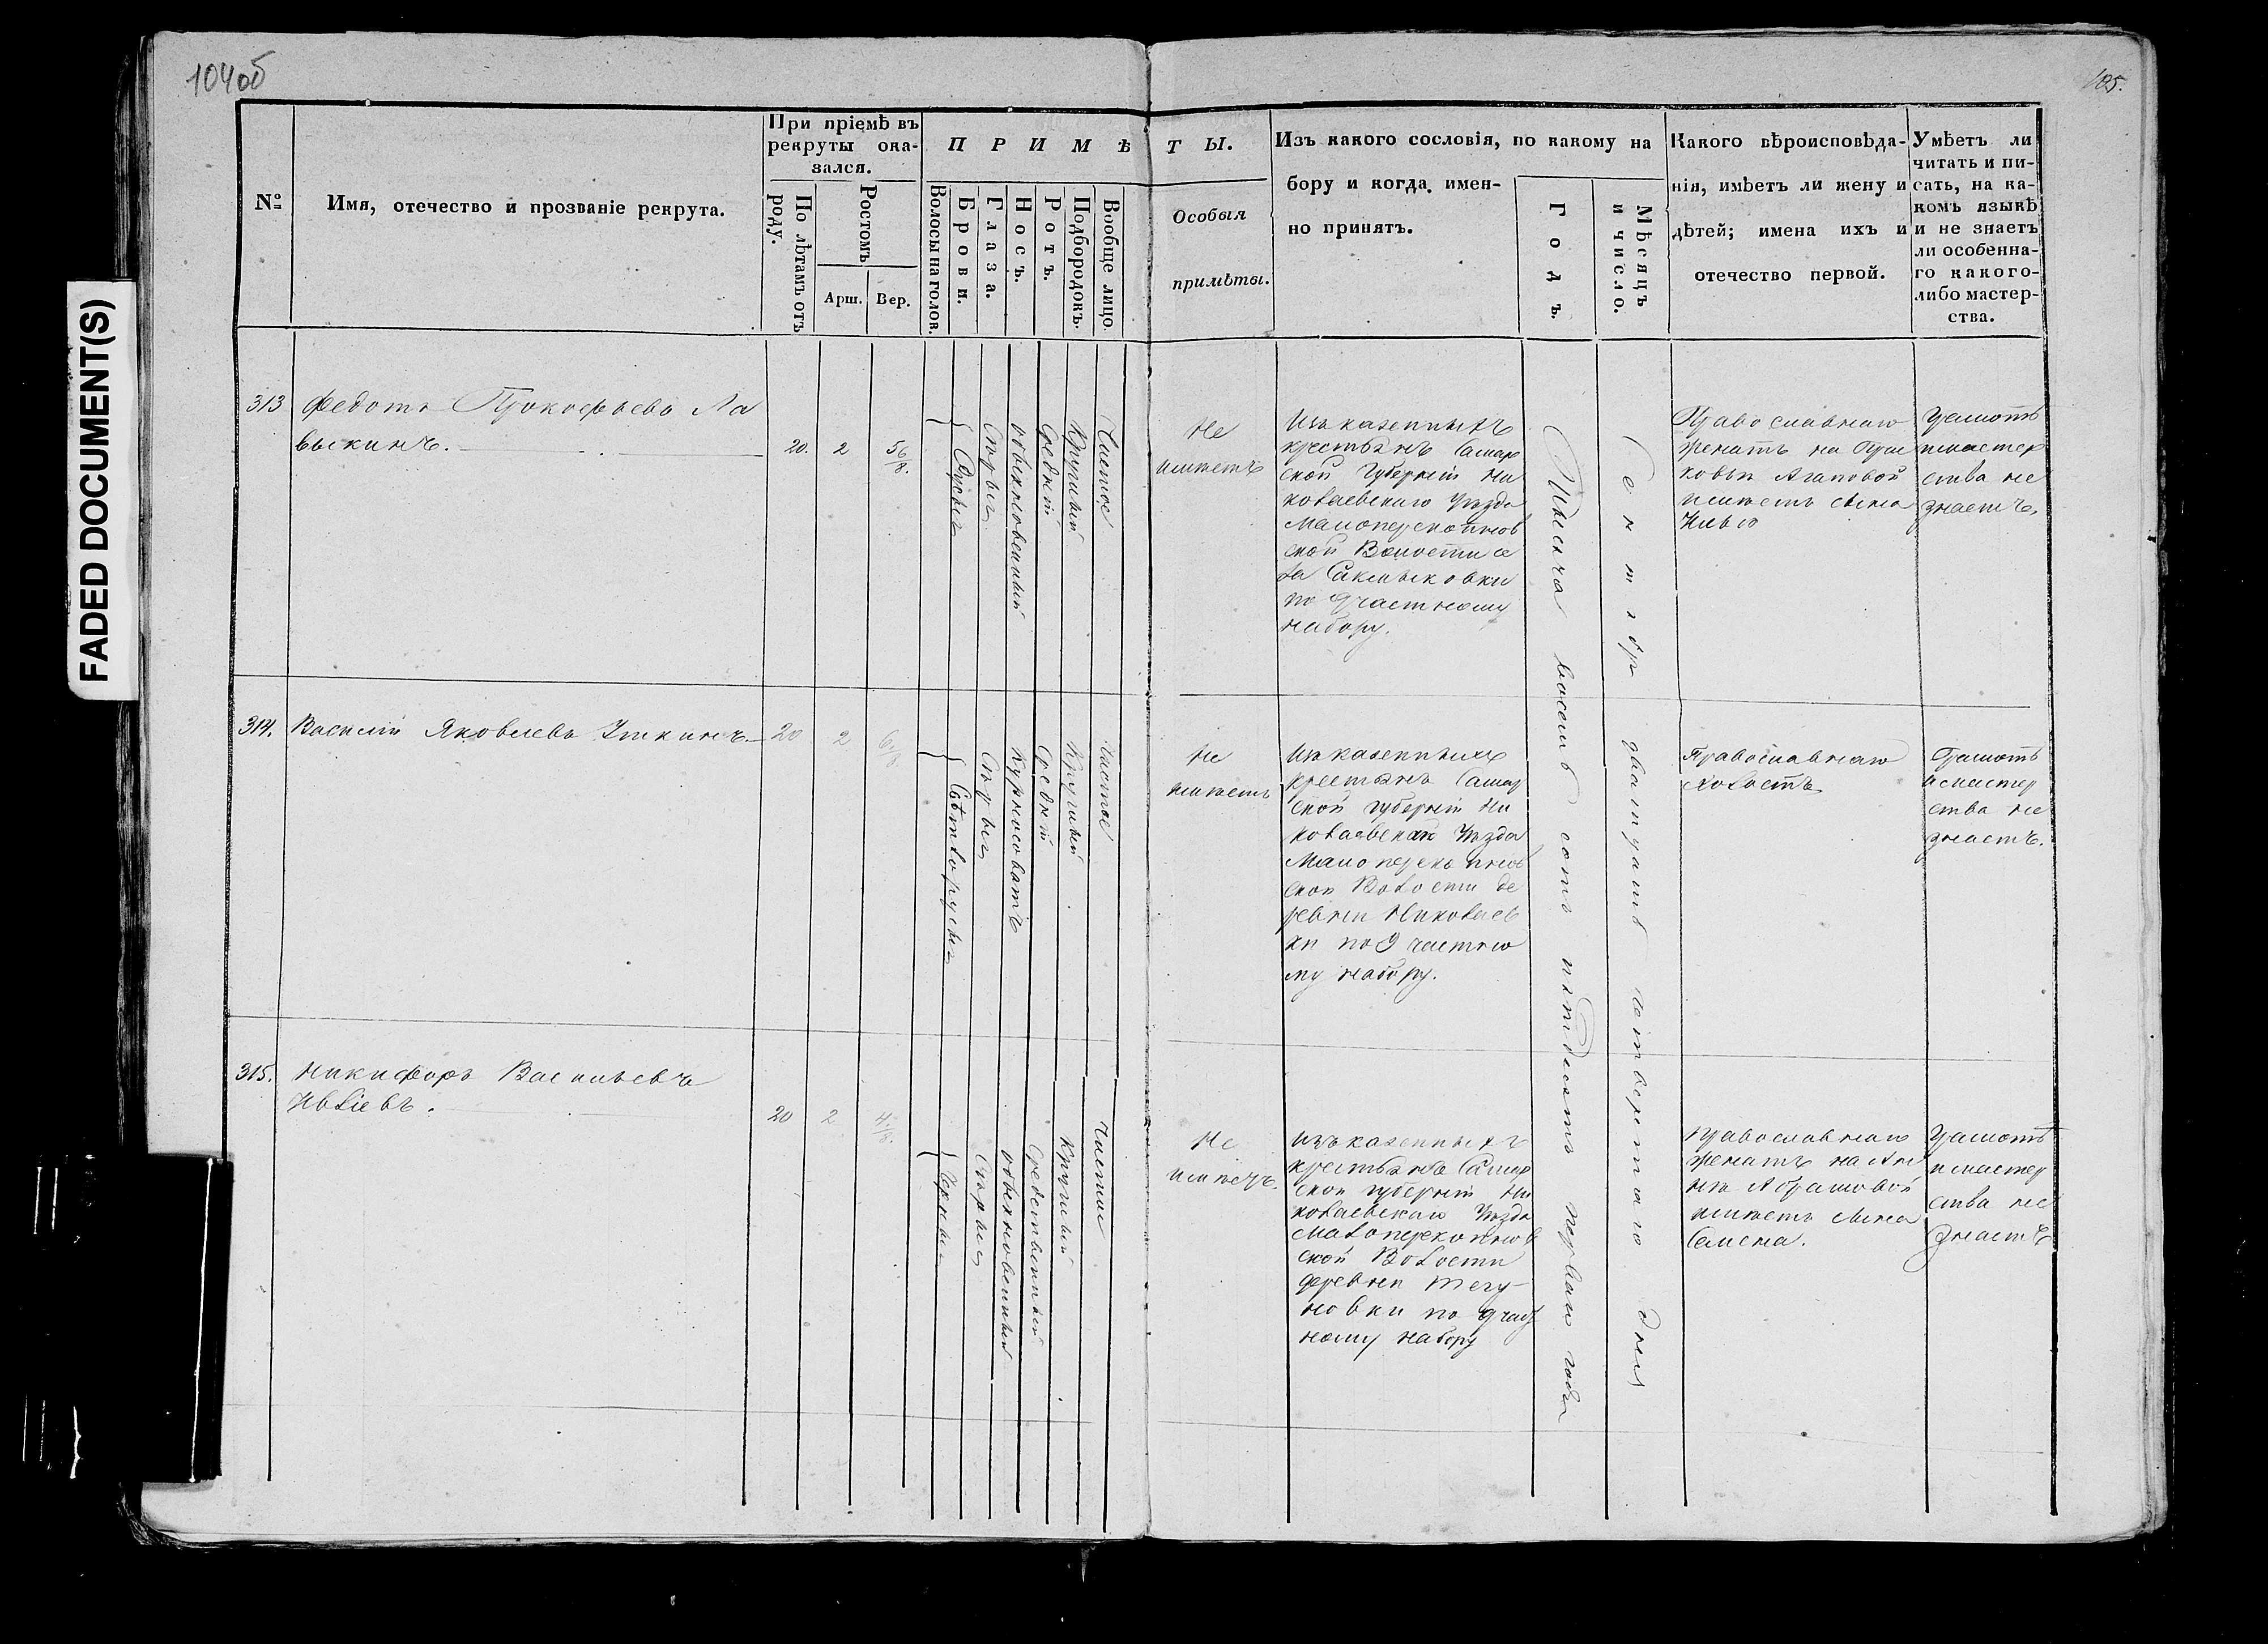 104об
105.
FADED DOCUMENT(S)
№
Имя, отечество и прозваніе рекрута.
При пріемѣ въ
рекруты ока-
зался.
По лѣтамъ отъ
роду.
Ростомъ
Арш.
Вер.
ПРИМѢ
ТЫ.
Волосы на голов.
Брови.
Глаза.
Носъ.
Ротъ.
Подбородокъ.
Вообще лицо.
Особыя
примѣты.
Изъ какого сословія, по какому на
бору и когда имен-
но принятъ.
Годъ.
Мѣсяцъ
и число.
Какого вѣроисповѣда-
нія, имѣетъ ли жену и
дѣтей; имена ихъ и
отечество первой.
Умѣетъ ли
читать и пи-
сать, на ка-
комъ языкѣ
и не знаетъ
ли особенна-
го какого-
либо мастер-
ства.
313
Федотъ Прокофьевъ Ла
выкинъ.
20.
2
5 6/8.
Русые
Сѣрые
обыкновенный
Средній
Круглый
Чистое
Не
имѣетъ
Изъ казенныхъ
крестьянъ Самар
ской Губерніи Ни
колаевскаго Уѣзда
Малоперекопнов
ской Волости се
ла
по 9 частному
набору.
Тысяча восемь сотъ пятьдесятъ перваго года
Сентябр двацать четвертаго дня
Православнаго
женатъ на Прас
ковьѣ Агаповой
имѣетъ сына
Илью
Грамотѣ
и мастер
ства не
знаетъ.
314.
Василій Яковлевъ Уткинъ.
20
2
Свѣтлорусые
Сѣрые
Курносоватъ
Средній
Круглый
Чистое
Не
имѣетъ
Изъ казенныхъ
крестьянъ Самар
ской губерніи Ни
колаевскаго Уѣзда
Малоперекопнов
ской Волости де
ревни Николаев
ки по 9 частно
му набору.
Православнаго
холостъ
Грамотѣ
и мастер
ства не
знаетъ.
315.
Никифоръ Васильевъ
Ивліевъ.
20
2
Черные
Сѣрые
обыкновенный
Средственный
Круглый
Чистое
Не
имѣетъ.
Изъ казенныхъ
крестьянъ Самар
ской губерніи Ни
колаевскаго Уѣзда
Малоперекопнов
ской Волости
деревни Тегу-
новки по 9 част
ному набору
Православнаго
женатъ на Ан
нѣ Абрамовой
имѣетъ сына
Семена.
Грамотѣ
и мастер
ства не
знаетъ